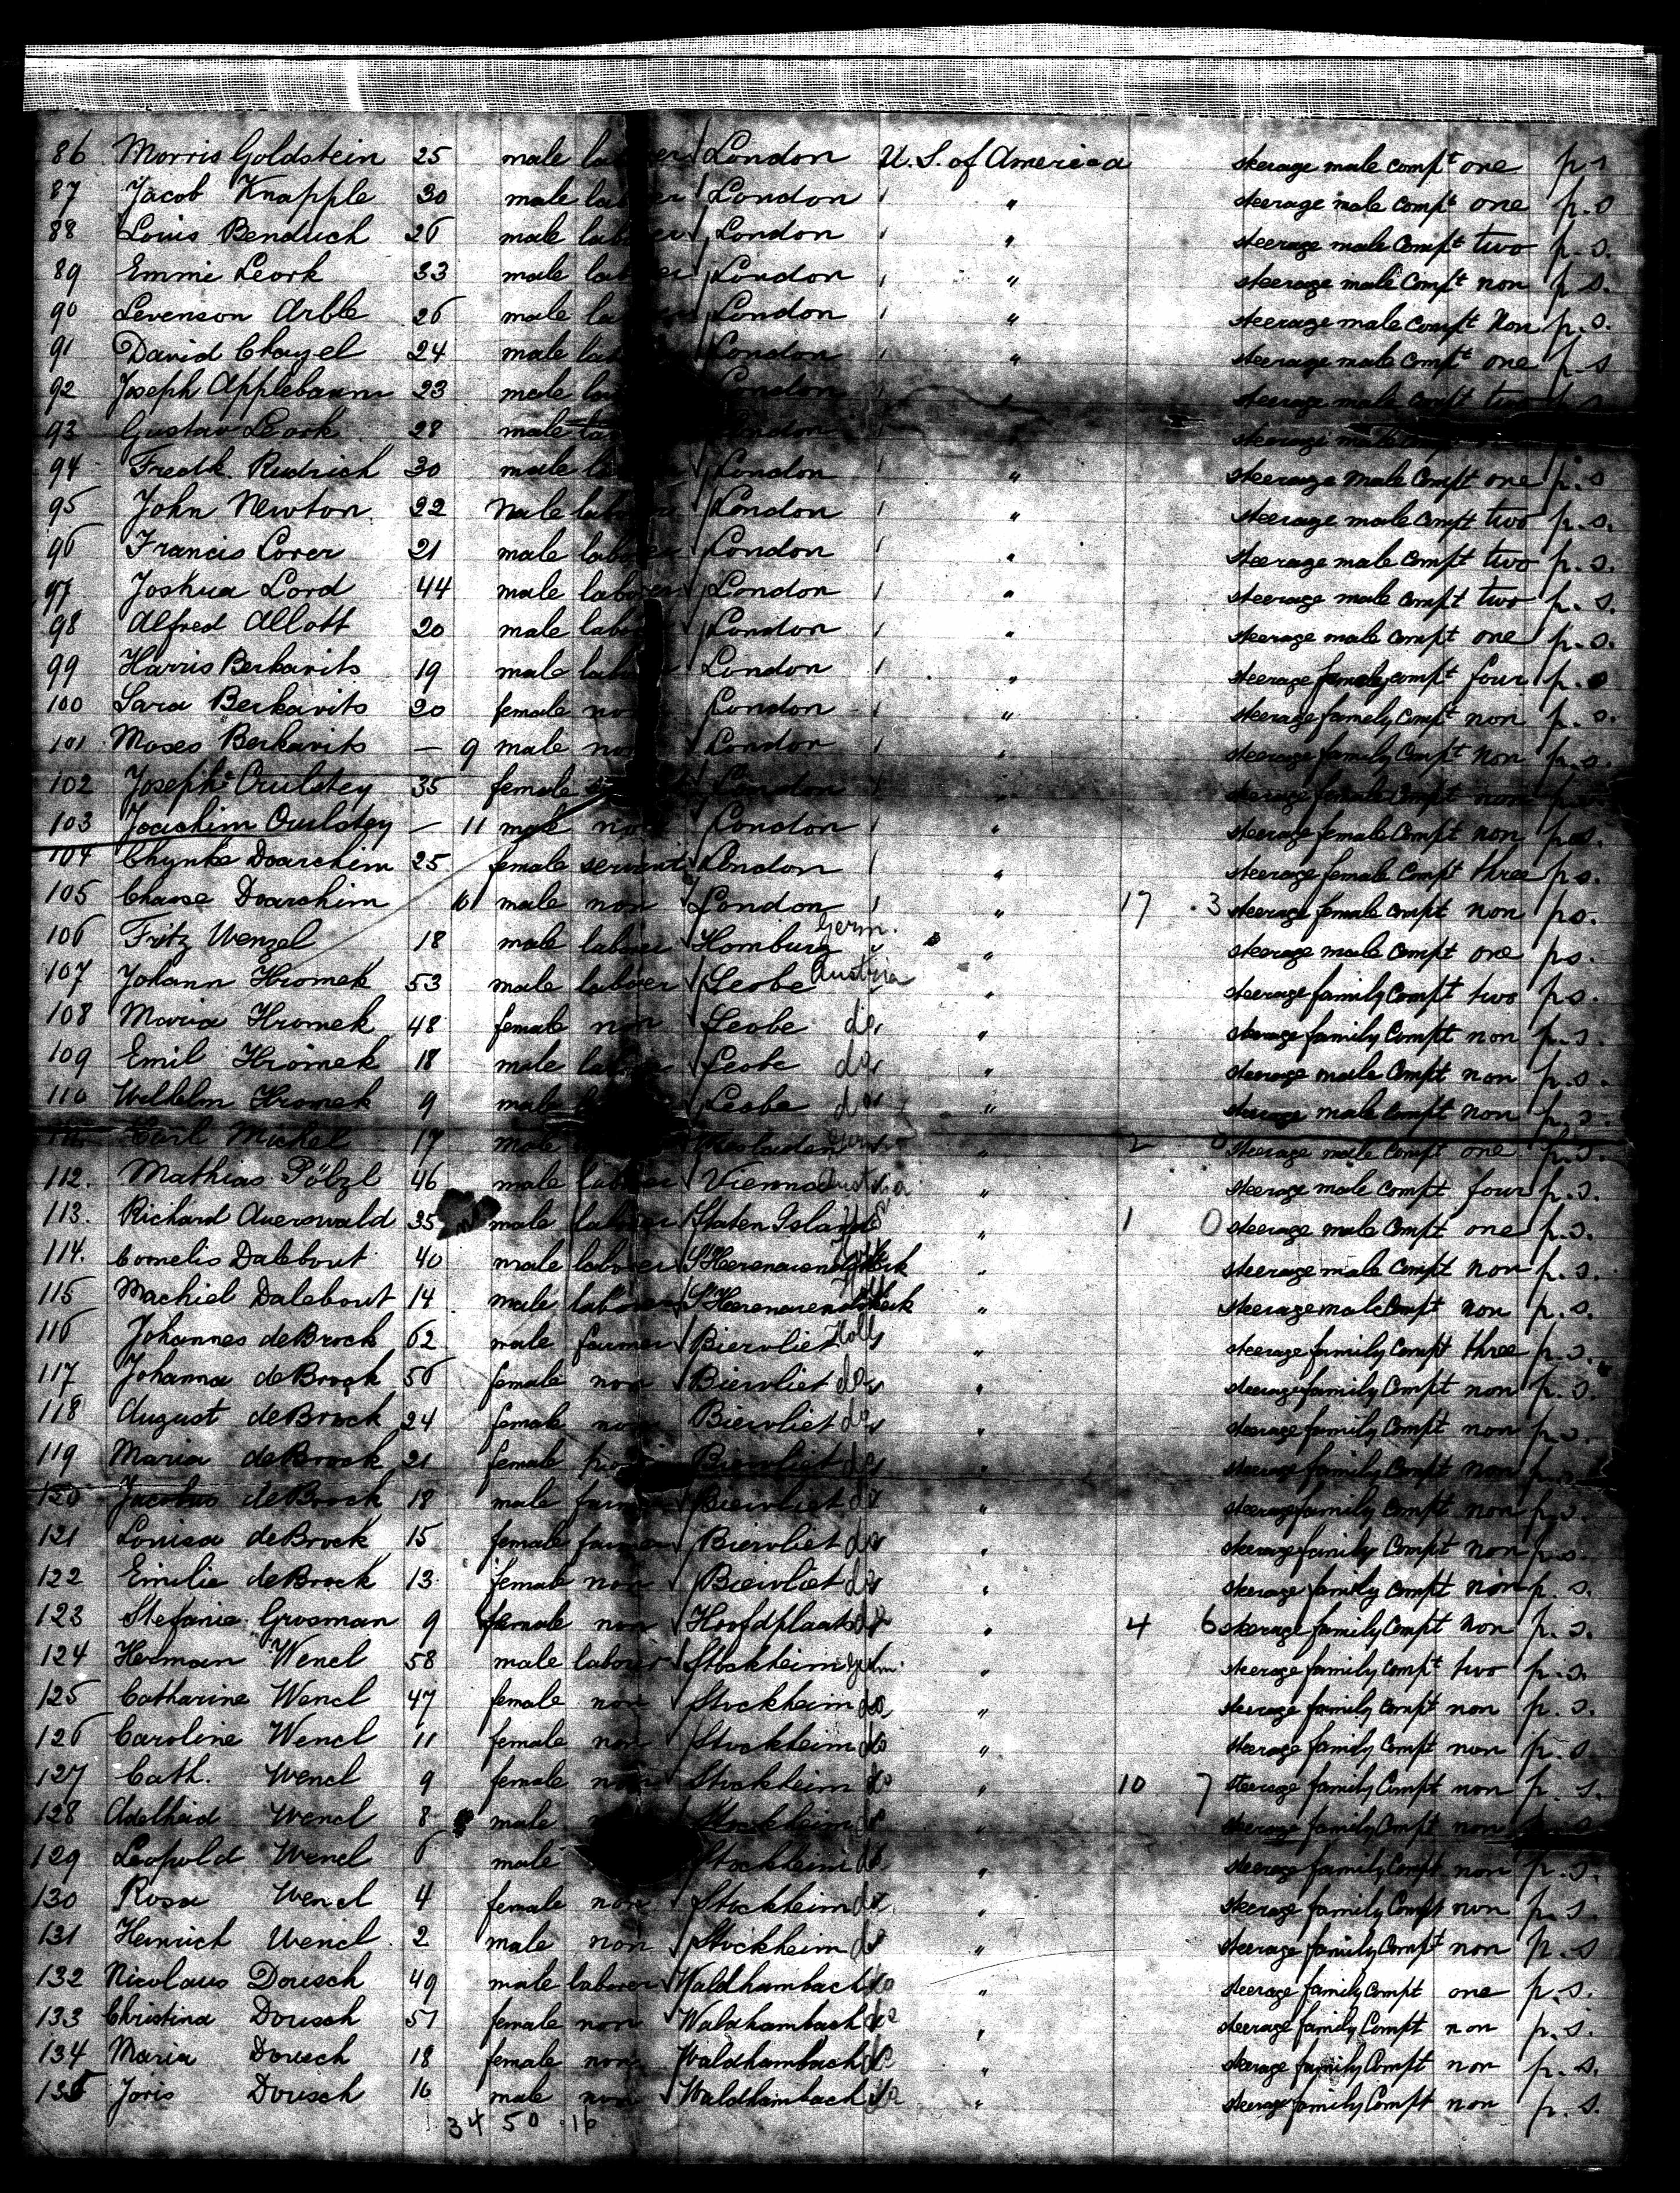 86 Morris Goldstein 25 male laborer London U.S. of America steerage male compt one p.s
87 Jacob Knapple 30 male laborer London " steerage male compt one p.s
88 Louis Benduch 26 male laborer London " steerage male compt two p.s.
89 Emmi Leork 33 male laborer London " steerage male compt non p.s.
90 Levenson Arble 26 male London " steerage male compt non p.s.
91 David Chayel 24 male London " steerage male compt one p.s
92 Joseph Applebaum 23 male London " steerage male compt two
93 Gustav Leork 28 male London " steerage male
94 Fredk. Rudrich 30 male London " steerage male compt one p.s
95 John Newton 22 male laborer London " steerage male compt two p.s.
96 Francis Corer 21 male laborer London " steerage male compt two p.s.
97 Joshua Lord 44 male laborer London " steerage male compt two p.s.
98 Alfred Allott 20 male laborer London " steerage male compt one p.s.
99 Harris Berkavits 19 male laborer London " steerage family compt four p.s
100 Sara Berkavits 20 female non London " steerage family compt non p.s.
101 Moses Berkavits — 9 male non London " steerage family compt non p.s.
102 35 female London " steerage female compt non
103 Joachim — 11 male non London " steerage female compt non p.s.
104 Chynke Doarchim 25 female servant London " steerage female compt three p.s.
105 Doarchim male non London " 17 3 steerage female compt non p.s.
106 Fritz Wenzel 18 male laborer Homburg Germ. " steerage male compt one p.s.
107 Johann Hromek 53 male laborer Leobe Austria " steerage family compt two p.s.
108 Maria Hromek 48 female non Leobe do " steerage family compt non p.s.
109 Emil Hromek 18 male laborer Leobe do " steerage male compt non p.s.
110 Wilhelm Hromek 9 male Leobe do " steerage male compt non p.s.
111. Carl Michel 17 male " 2 0 steerage male compt one p.s.
112. Mathias Pölzl 46 male laborer Vienna Austria " steerage male compt four p.s.
113. Richard Auerswald 35 male laborer Staten Island " 1 0 steerage male compt one p.s.
114. Cornelis Dalebout 40 male laborer " steerage male compt non p.s.
115 Machiel Dalebout 14 male laborer " steerage male compt non p.s.
116 Johannes deBrock 62 male farmer Biervliet Holl " steerage family compt three p.s.
117 Johanna deBrock 56 female non Biervliet do " steerage family compt non p.s.
118 August deBrock 24 female non Biervliet do " steerage family compt non p.s.
119 Maria deBrock 21 female Biervliet do " steerage family compt non
120 Jacobus deBrock 18 male farmer Biervliet do " steerage family compt non p.s.
121 Louisa deBrock 15 female farmer Biervliet do " steerage family compt non p.s.
122 Emilie deBrock 13 female non Biervliet do " steerage family compt non p.s.
123 Stefanie Grosman 9 female non Hoofdplaat do " 4 6 steerage family compt non p.s.
124 Herman Wencl 58 male laborer Stockheim Germ. " steerage family compt two p.s.
125 Catharine Wencl 47 female non Stockheim do " steerage family compt non p.s.
126 Caroline Wencl 11 female non Stockheim do " steerage family compt non p.s
127 Cath. Wencl 9 female non Stockheim do " 10 7 steerage family compt non p.s.
128 Adelheid Wencl 8 male Stockheim do " steerage family compt non
129 Leopold Wencl 6 male Stockheim do " steerage family compt non p.s.
130 Rosa Wencl 4 female non Stockheim do " steerage family compt non p.s.
131 Heinrich Wencl 2 male non Stockheim do " steerage family compt non p.s
132 Nicolaus Dousch 49 male laborer Waldhambach do " steerage family compt one p.s.
133 Christina Dousch 51 female non Waldhambach do " steerage family compt non p.s.
134 Maria Dousch 18 female non Waldhambach do " steerage family compt non p.s.
135 Joris Dousch 16 male non Waldhambach do " steerage family compt non p.s.
34 50 16